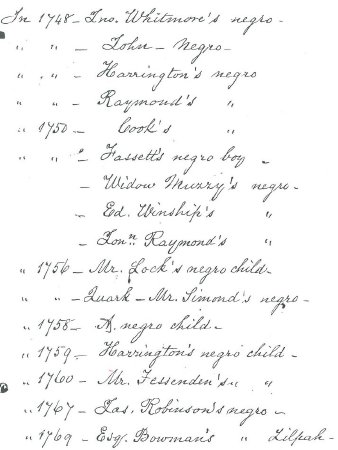 In 1748 - Jno. Whitmore's negro -
" " - John - Negro -
" " - Harrington's negro
" " - Raymond's "
" 1750 - Cook's "
" " " - Fassett's negro boy -
- Widow Muzzy's negro -
- Ed. Winship's "
- Jonn. Raymond's "
" 1756 - Mr. Lock's negro child -
" " - Quark - Mr. Simond's negro -
" 1758 - A negro child -
" 1759 - Harrington's negro child -
" 1760 - Mr. Fessenden's " "
" 1767 - Jas. Robinson's negro -
" 1769 - Esq. Bowman's " Zilpah -